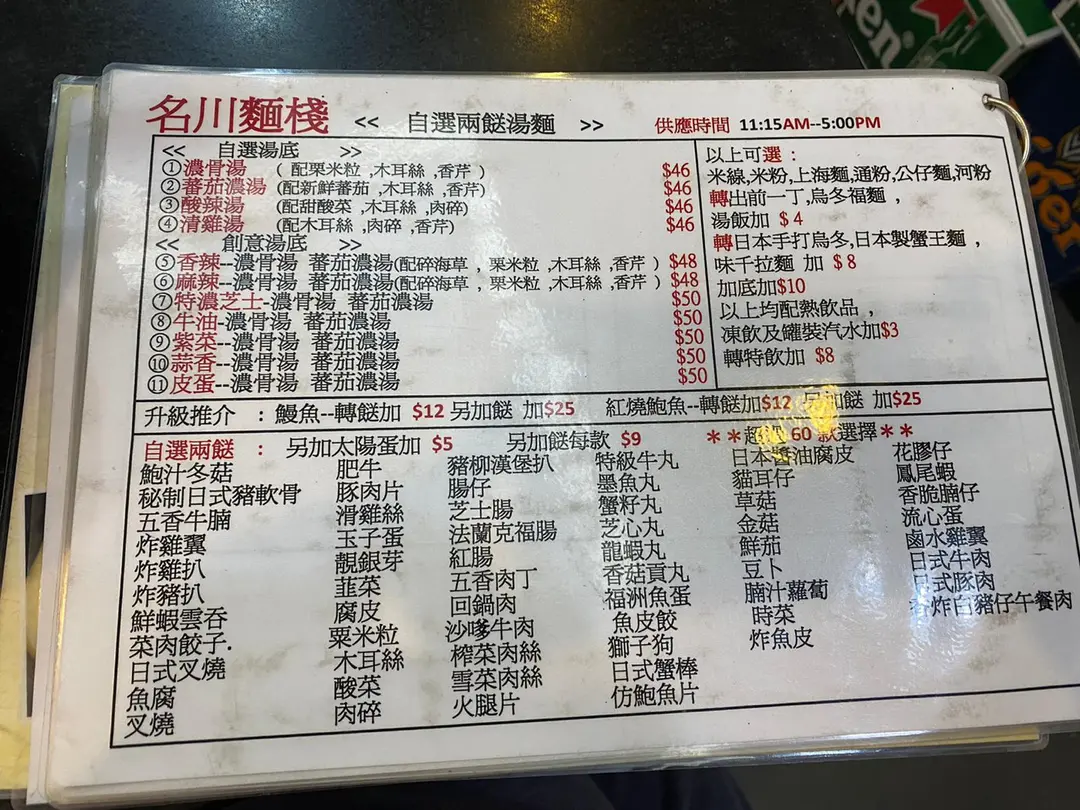 名川麵棧 << 自選兩餸湯麵 >> 供應時間 11:15AM--5:00PM
<< 自選湯底 >>
①濃骨湯 ( 配栗米粒 ,木耳絲 ,香芹 ) $46
②蕃茄濃湯 (配新鮮蕃茄 ,木耳絲 ,香芹) $46
③酸辣湯 (配甜酸菜 ,木耳絲 ,肉碎) $46
④清雞湯 (配木耳絲 ,肉碎 ,香芹) $46
<< 創意湯底 >>
⑤香辣--濃骨湯 蕃茄濃湯(配碎海草 , 栗米粒 ,木耳絲 ,香芹 ) $48
⑥麻辣--濃骨湯 蕃茄濃湯(配碎海草 , 栗米粒 ,木耳絲 ,香芹 ) $48
⑦特濃芝士-濃骨湯 蕃茄濃湯 $50
⑧牛油-濃骨湯 蕃茄濃湯 $50
⑨紫菜--濃骨湯 蕃茄濃湯 $50
⑩蒜香--濃骨湯 蕃茄濃湯 $50
⑪皮蛋--濃骨湯 蕃茄濃湯 $50
以上可選 :
米線,米粉,上海麵,通粉,公仔麵,河粉
轉出前一丁,烏冬福麵 ,
湯飯加 $ 4
轉日本手打烏冬,日本製蟹王麵 ,
味千拉麵 加 $ 8
加底加$10
以上均配熱飲品 ,
凍飲及罐裝汽水加$3
轉特飲加 $8
升級推介 : 鰻魚--轉餸加 $12 另加餸 加$25 紅燒鮑魚--轉餸加$12 另加餸 加$25
自選兩餸 : 另加太陽蛋加 $5 另加餸每款 $9 **超過 60 款選擇**
鮑汁冬菇
秘制日式豬軟骨
五香牛腩
炸雞翼
炸雞扒
炸豬扒
鮮蝦雲吞
菜肉餃子.
日式叉燒
魚腐
叉燒
肥牛
豚肉片
滑雞絲
玉子蛋
靚銀芽
韮菜
腐皮
粟米粒
木耳絲
酸菜
肉碎
豬柳漢堡扒
腸仔
芝士腸
法蘭克福腸
紅腸
五香肉丁
回鍋肉
沙嗲牛肉
榨菜肉絲
雪菜肉絲
火腿片
特級牛丸
墨魚丸
蟹籽丸
芝心丸
龍蝦丸
香菇貢丸
福洲魚蛋
魚皮餃
獅子狗
日式蟹棒
仿鮑魚片
日本醬油腐皮
貓耳仔
草菇
金菇
鮮茄
豆卜
腩汁蘿蔔
時菜
炸魚皮
花膠仔
鳳尾蝦
香脆腩仔
流心蛋
鹵水雞翼
日式牛肉
日式豚肉
香炸白豬仔午餐肉